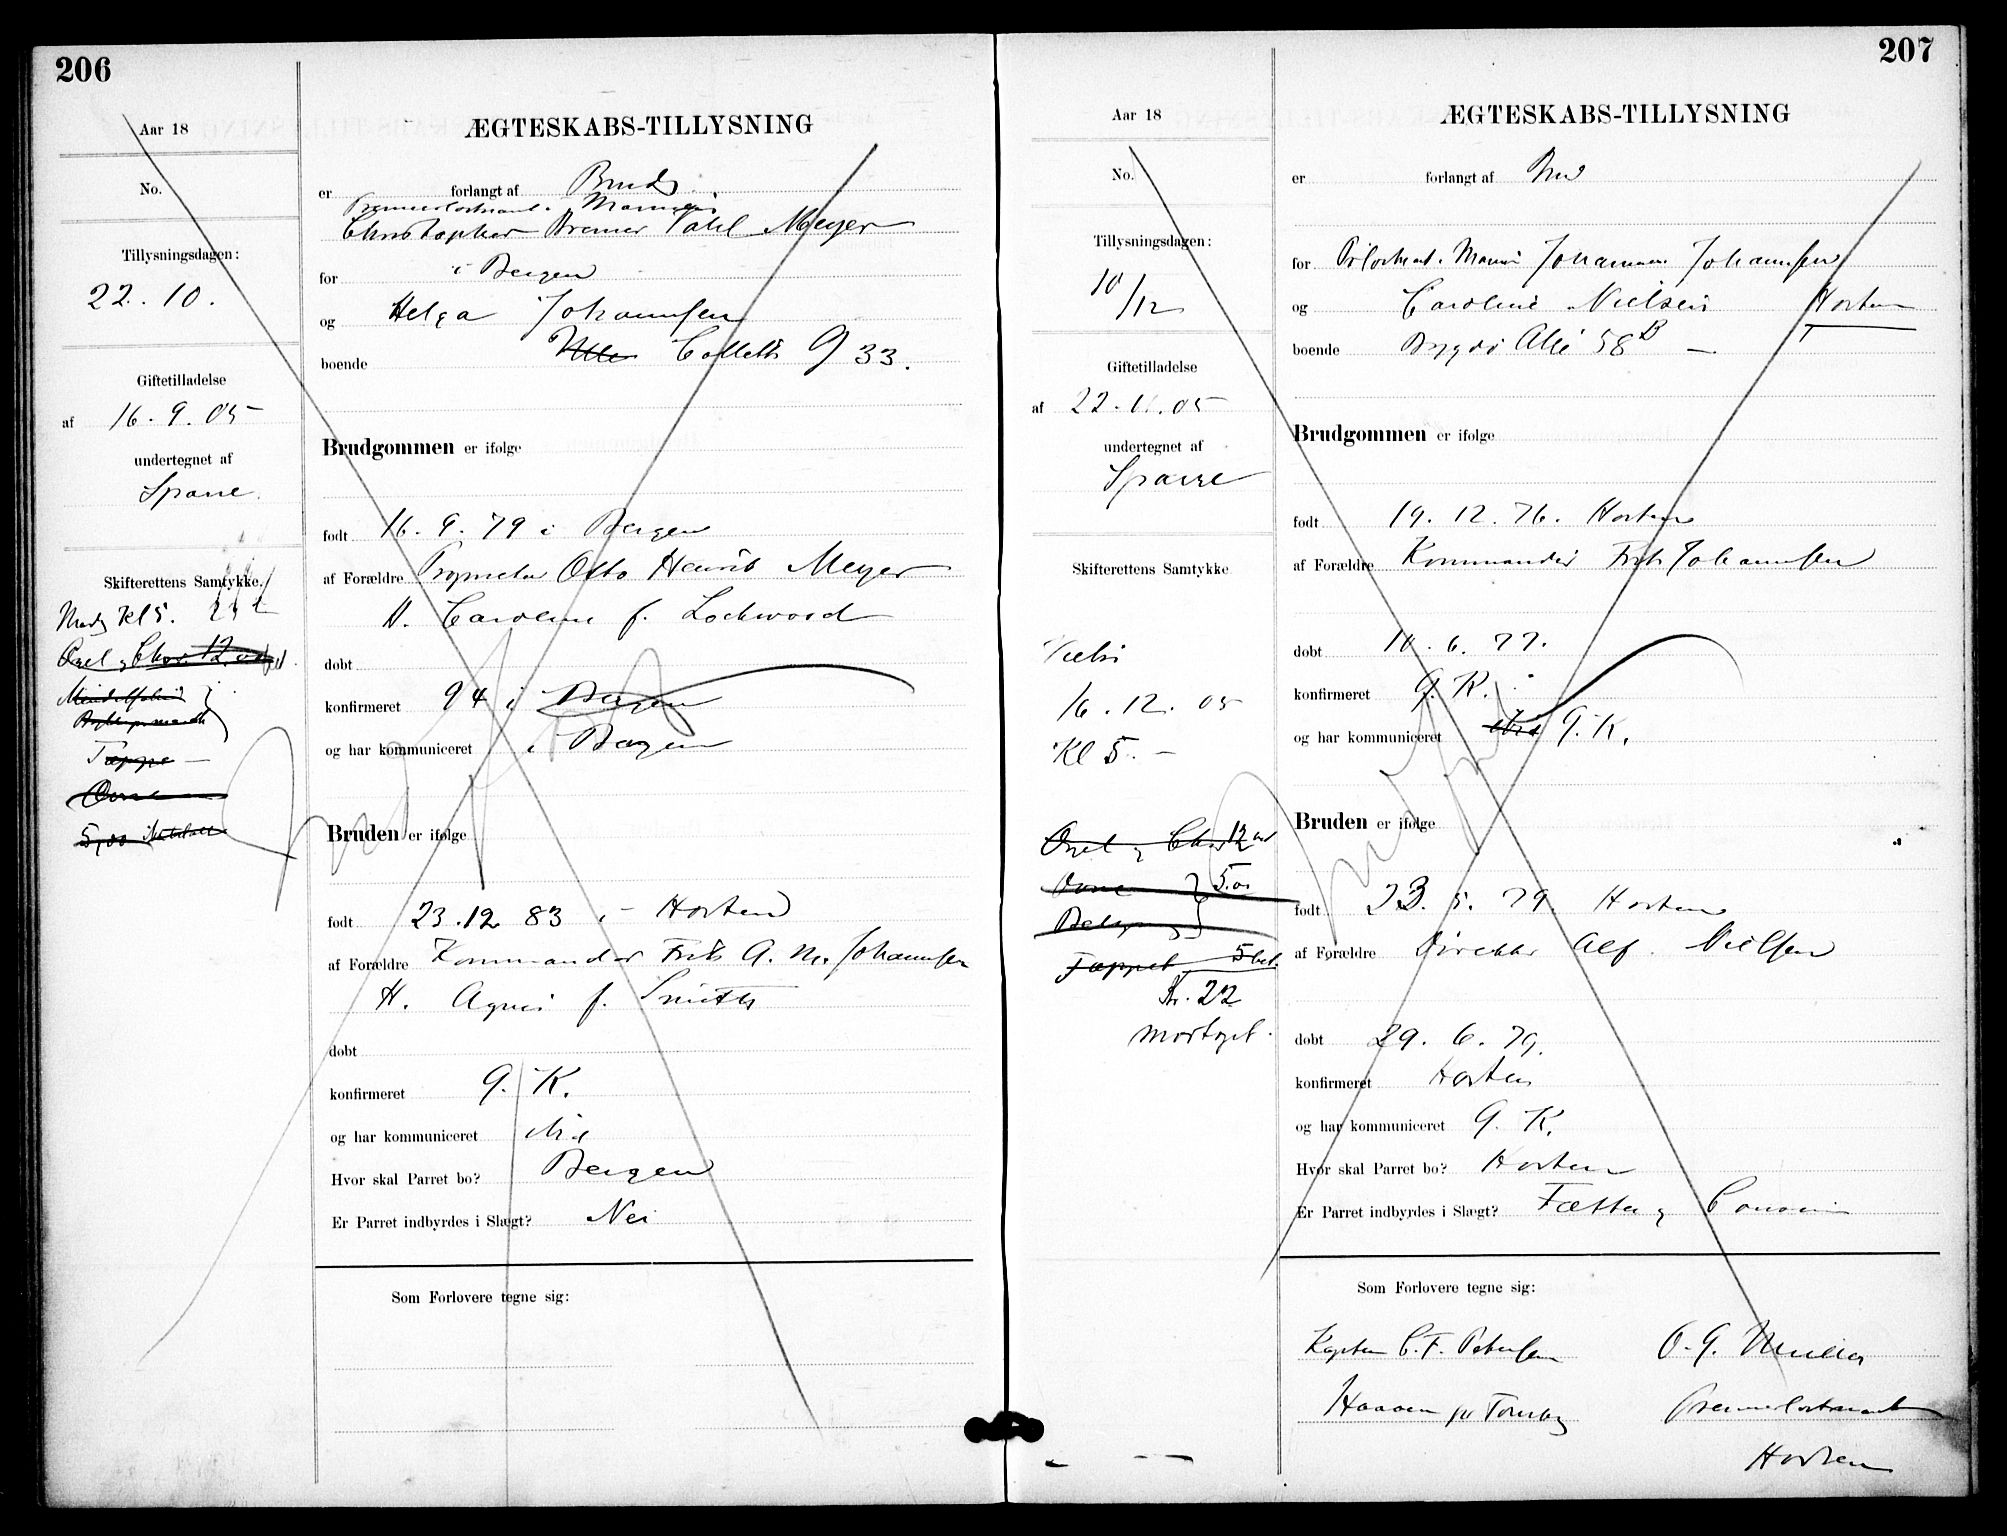 206
Aar 18
No.
Tillysningsdagen:
22. 10.
Giftetilladelse
af 16. 9. 05
undertegnet af
Sparre
Skifterettens Samtykke
Kl 5.
Orgel og Chor 12,00
Tæppe
5,00
ÆGTESKABS-TILLYSNING
er forlangt af Brud
Premierløitnant i Marinen
Christopher Bremer Dahl Meyer
for i Bergen
og Helga Johannsen
boende Colletts G 33.
Brudgommen er ifølge
født 16. 9. 79 i Bergen
af Forældre Otto Henrik Meyer
H. Caroline f. Lockwood
døbt
konfirmeret 94 i Bergen
og har kommuniceret i Bergen
Bruden er ifølge
født 23. 12 83 i Horten
af Forældre Kommandør Frits A. M. Johannsen
H. Agnes f. Smith
døbt
konfirmeret G. K.
og har kommuniceret
Hvor skal Parret bo? Bergen
Er Parret indbyrdes i Slægt? Nei
Som Forlovere tegne sig:
207
Aar 18
No.
Tillysningsdagen:
10/12
Giftetilladelse
af 22. 11. 05
undertegnet af
Sparre
Skifterettens Samtykke
Vielse
16. 12. 05
Kl 5. —
Orgel og Chor 12
5.00
Tæppet 5
Kr. 22
mottget.
ÆGTESKABS-TILLYSNING
er forlangt af Brud
for Johannsen
og Caroline Nielsen Horten
boende Bygdø Allé 58 B —
Brudgommen er ifølge
født 19. 12. 76. Horten
af Forældre Kommandør Frits Johannsen
døbt 10. 6. 77.
konfirmeret G. K.
og har kommuniceret G. K.
Bruden er ifølge
født 23. 5. 79. Horten
af Forældre Direktør Alf. Nielsen
døbt 29. 6. 79.
konfirmeret Horten
og har kommuniceret G. K.
Hvor skal Parret bo? Horten
Er Parret indbyrdes i Slægt? Fætter og Cousine
Som Forlovere tegne sig:
Kaptein C. F. Petersen O. G. Müller
Premierløitnant
Horten